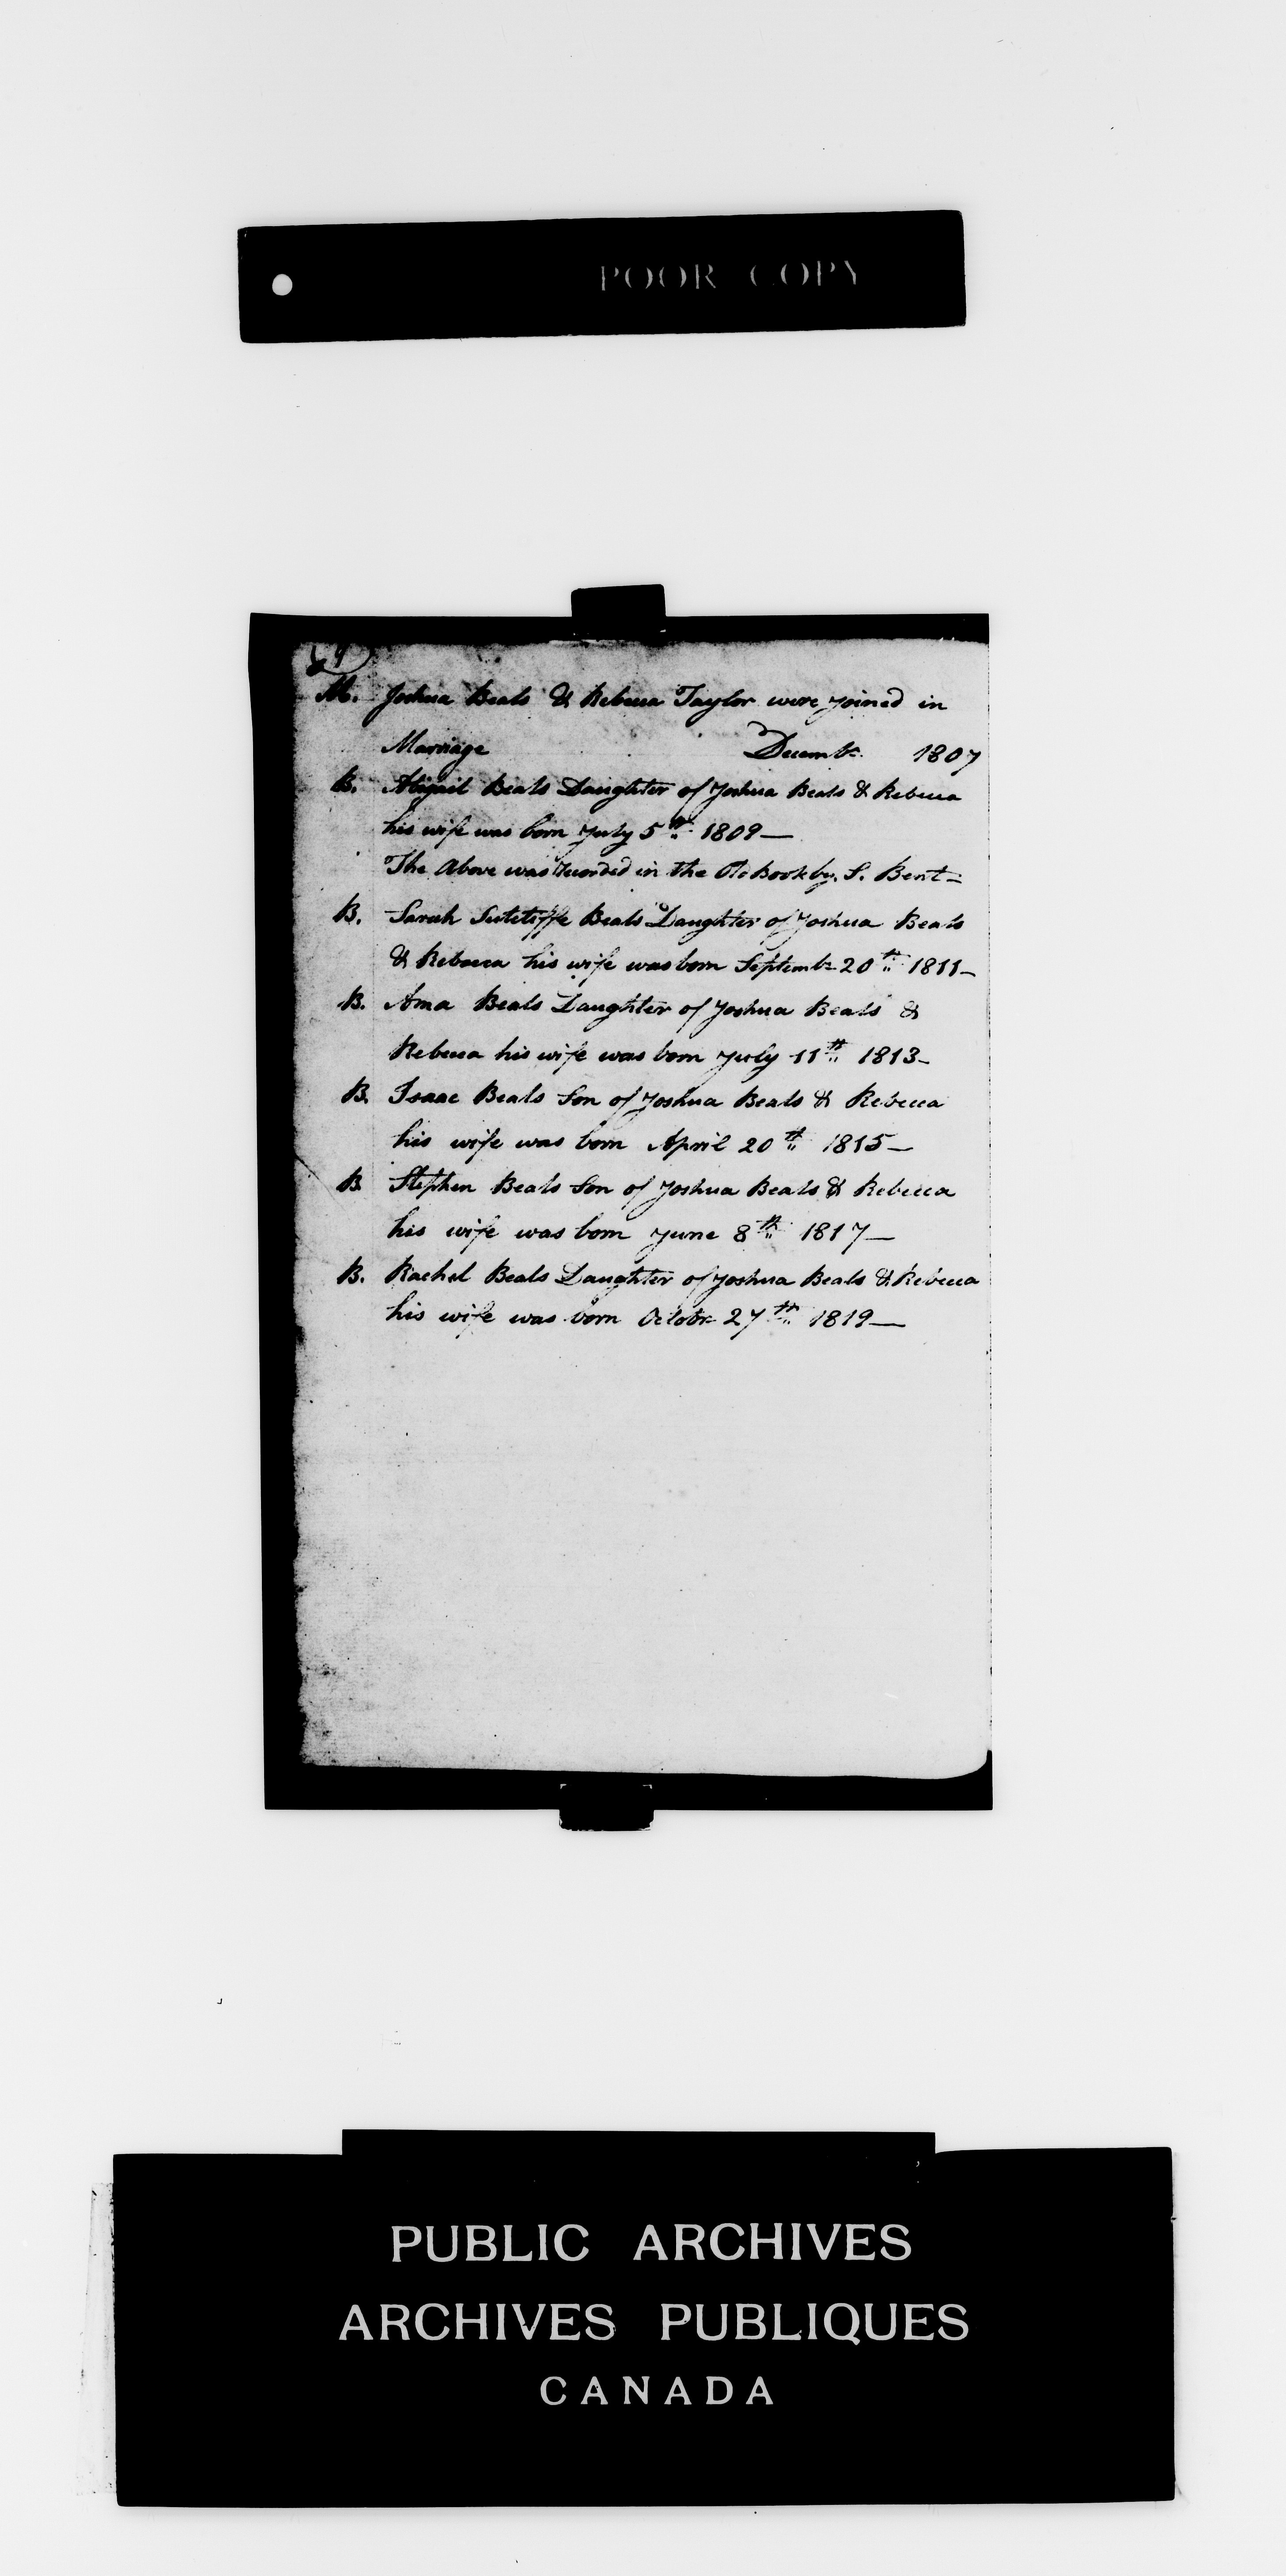 POOR COPY
M. Joshua Beals & Rebecca Taylor were joined in
Marriage Decembr. 1807
B. Abigail Beals Daughter of Joshua Beals & Rebecca
his wife was born July 5th 1809—
The Above was recorded in the Old Book by S. Bent=
B. Sarah Sutcliffe Beals Daughter of Joshua Beals
& Rebecca his wife was born Septembr 20th 1811—
B. Ama Beals Daughter of Joshua Beals &
Rebecca his wife was born July 11th 1813—
B. Isaac Beals Son of Joshua Beals & Rebecca
his wife was born April 20th 1815—
B. Stephen Beals Son of Joshua Beals & Rebecca
his wife was born June 8th 1817—
B. Rachel Beals Daughter of Joshua Beals & Rebecca
his wife was born Octobr 27th 1819—
PUBLIC ARCHIVES
ARCHIVES PUBLIQUES
CANADA